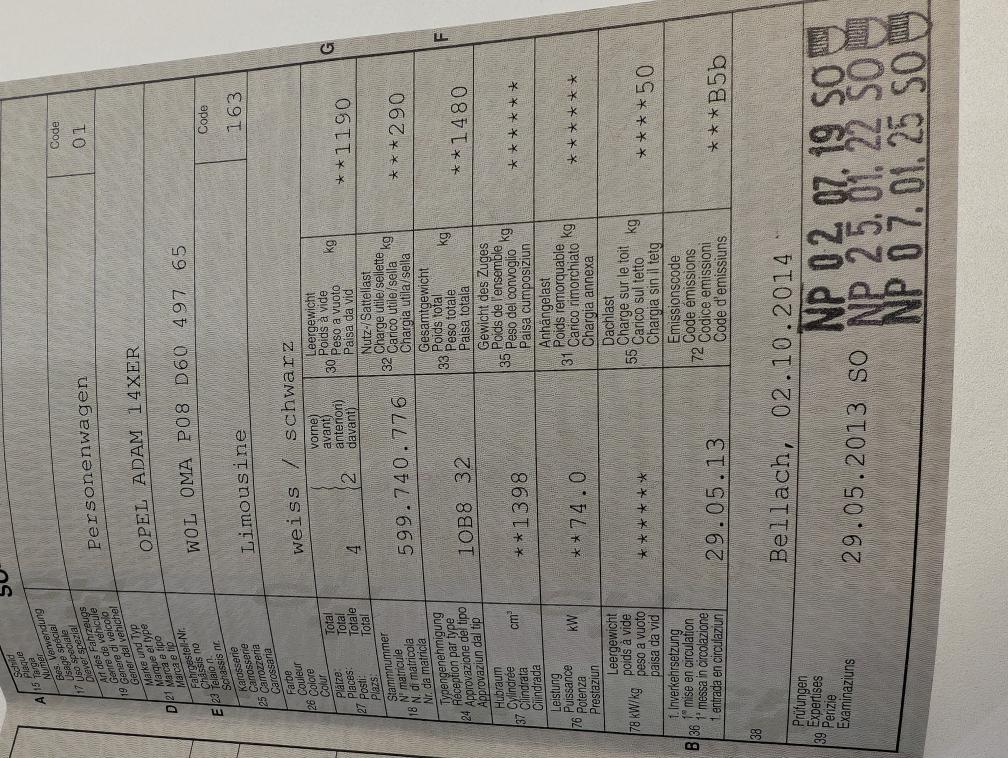 SO
Schild
Plaque
A 15 Targa
Numer
Bes. Verwendung
Usage spécial
Usage speciale
17 Uso spezial
Code
01
Art des Fahrzeugs
Genre de véhicule
Genere di veicolo
19 Gener dal vehichel
Personenwagen
Marke und Typ
Marque et type
Marca e tipo
D 21 Marca e tip
OPEL ADAM 14XER
Fahrgestell-Nr.
Châssis no
Telaio n.
E 23 Schassis nr.
W0L 0MA P08 D60 497 65
Karosserie
Carrosserie
25 Carrozzeria
Carossaria
Limousine
Code
163
Farbe
Couleur
26 Colore
Colur
weiss / schwarz
Plätze: Total
Places: Total
27 Posti: Totale
Plazs: Total
4
2
vorne)
avant)
anteriori)
davant)
Leergewicht
Poids à vide
30 Peso a vuoto
Paisa da vid
kg
**1190
G
Stammnummer
N° matricule
18 N. di matricola
Nr. da matricla
599.740.776
Nutz-/Sattellast
Charge utile/sellette
32 Carico utile/sella
Chargia utila/sella
kg
***290
Typengenehmigung
Réception par type
24 Approvazione del tipo
Approvaziun dal tip
1OB8 32
Gesamtgewicht
Poids total
33 Peso totale
Paisa totala
kg
**1480
F
Hubraum
Cylindrée
37 Cilindrata
Cilindrada
cm³
**1398
Gewicht des Zuges
Poids de l'ensemble
35 Peso del convoglio
Paisa cumposiziun
kg
******
Leistung
Puissance
76 Potenza
Prestaziun
kW
**74.0
Anhängelast
Poids remorquable
31 Carico rimorchiato
Chargia annexa
kg
******
Leergewicht
poids à vide
78 kW/kg peso a vuoto
paisa da vid
******
Dachlast
Charge sur le toit
55 Carico sul tetto
Chargia sin il tetg
kg
****50
1. Inverkehrsetzung
1re mise en circulation
B 36 1a messa in circolazione
1. entrada en circulaziun
29.05.13
Emissionscode
Code émissions
72 Codice emissioni
Code d'emissiuns
***B5b
38
Bellach, 02.10.2014
Prüfungen
Expertises
39 Perizie
Examinaziuns
29.05.2013 SO
NP 02 07. 19 SO
NP 25. 01. 22 SO
NP 07. 01. 25 SO